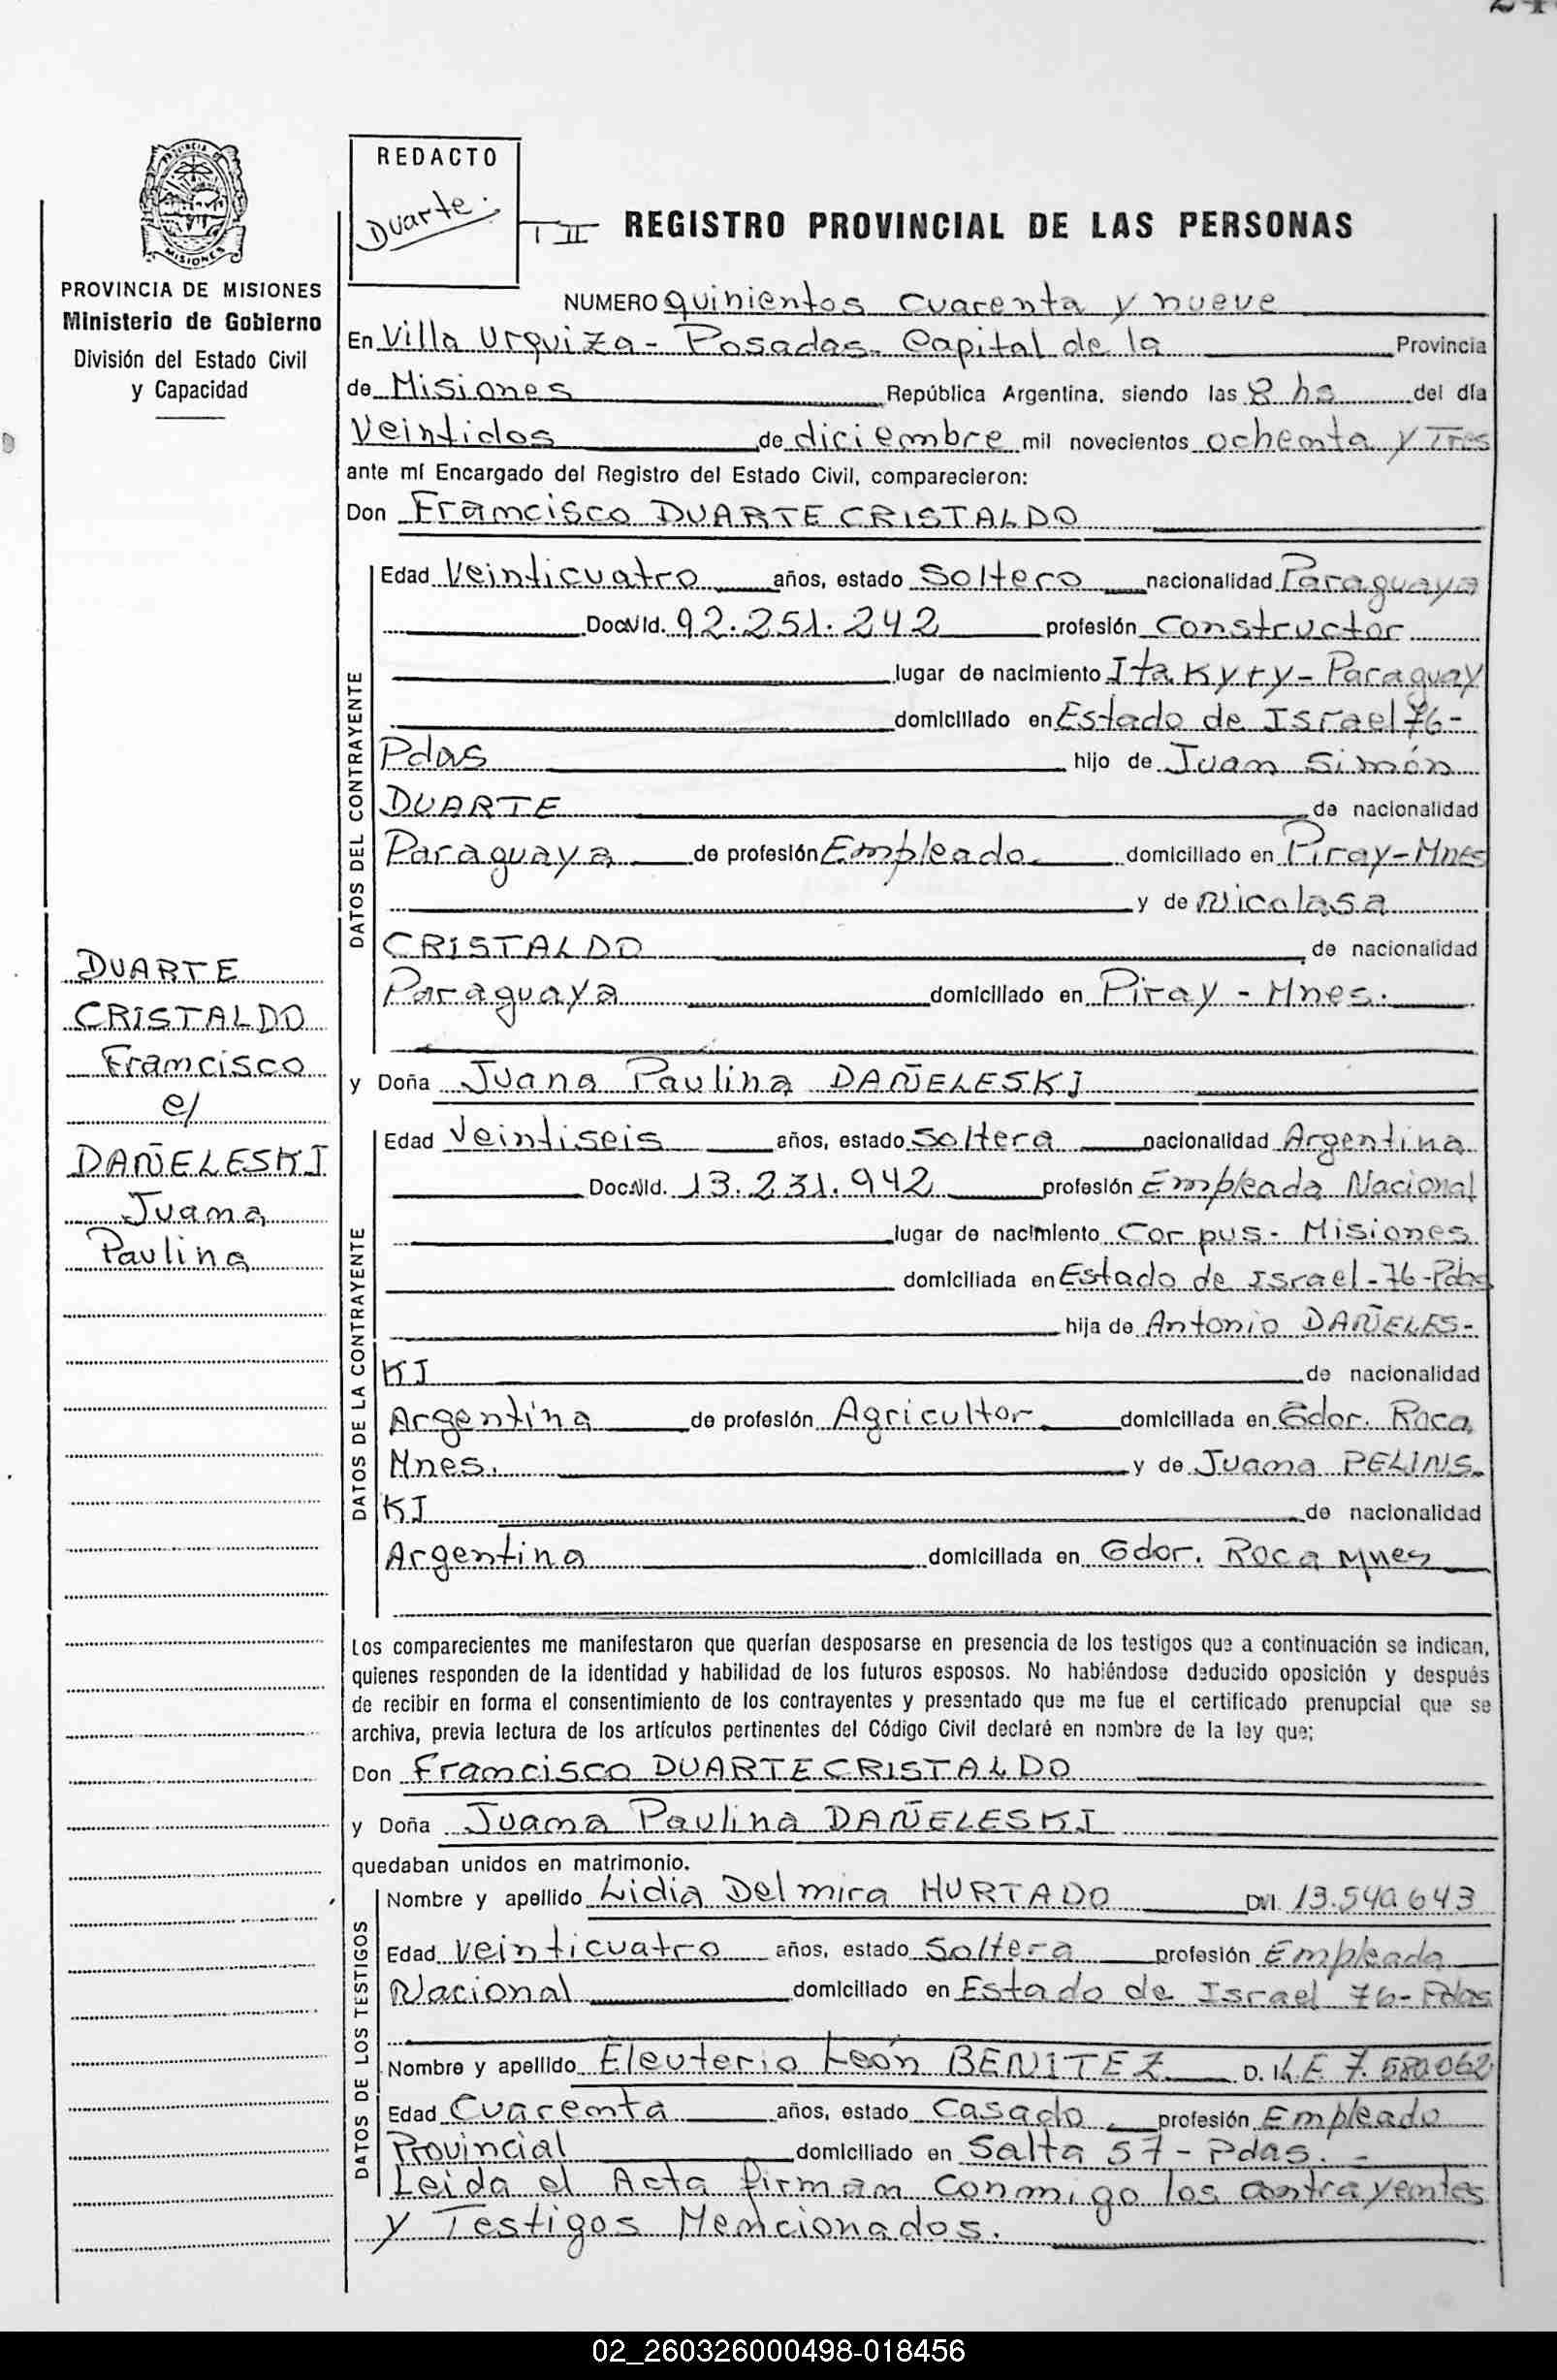 REDACTO
Duarte.
I II
REGISTRO PROVINCIAL DE LAS PERSONAS
PROVINCIA DE MISIONES
Ministerio de Gobierno
División del Estado Civil
y Capacidad
NUMERO quinientos cuarenta y nueve
En Villa Urquiza - Posadas - Capital de la Provincia
de Misiones República Argentina, siendo las 8 hs del día
Veintidos de diciembre mil novecientos ochenta y Tres
ante mí Encargado del Registro del Estado Civil, comparecieron:
Don Francisco DUARTE CRISTALDO
DATOS DEL CONTRAYENTE
Edad Veinticuatro años, estado Soltero nacionalidad Paraguaya
Doc. Id. 92.251.242 profesión Constructor
lugar de nacimiento Itakyry - Paraguay
domiciliado en Estado de Israel 76 -
Pdas hijo de Juan Simón
DUARTE de nacionalidad
Paraguaya de profesión Empleado domiciliado en Piray - Mnes
y de Nicolasa
CRISTALDO de nacionalidad
Paraguaya domiciliado en Piray - Mnes.
DUARTE
CRISTALDO
Francisco
c/
DAÑELESKI
Juana
Paulina
y Doña Juana Paulina DAÑELESKI
DATOS DE LA CONTRAYENTE
Edad Veintiseis años, estado Soltera nacionalidad Argentina
Doc. Id. 13.231.942 profesión Empleada Nacional
lugar de nacimiento Corpus - Misiones
domiciliada en Estado de Israel - 76 - Pdas
hija de Antonio DAÑELES-
KI de nacionalidad
Argentina de profesión Agricultor domiciliada en Gdor. Roca
Mnes. y de Juana PELINS-
KI de nacionalidad
Argentina domiciliada en Gdor. Roca Mnes
Los comparecientes me manifestaron que querían desposarse en presencia de los testigos que a continuación se indican,
quienes responden de la identidad y habilidad de los futuros esposos. No habiéndose deducido oposición y después
de recibir en forma el consentimiento de los contrayentes y presentado que me fue el certificado prenupcial que se
archiva, previa lectura de los artículos pertinentes del Código Civil declaré en nombre de la ley que;
Don Francisco DUARTE CRISTALDO
y Doña Juana Paulina DAÑELESKI
quedaban unidos en matrimonio.
DATOS DE LOS TESTIGOS
Nombre y apellido Lidia Delmira HURTADO DNI. 13.540.643
Edad veinticuatro años, estado Soltera profesión Empleada
Nacional domiciliado en Estado de Israel 76 - Pdas
Nombre y apellido Eleuterio León BENITEZ D. I. L.E 7.580.062
Edad Cuarenta años, estado Casado profesión Empleado
Provincial domiciliado en Salta 57 - Pdas. -
Leida el Acta firman conmigo los contrayentes
y Testigos Mencionados.
02_260326000498-018456